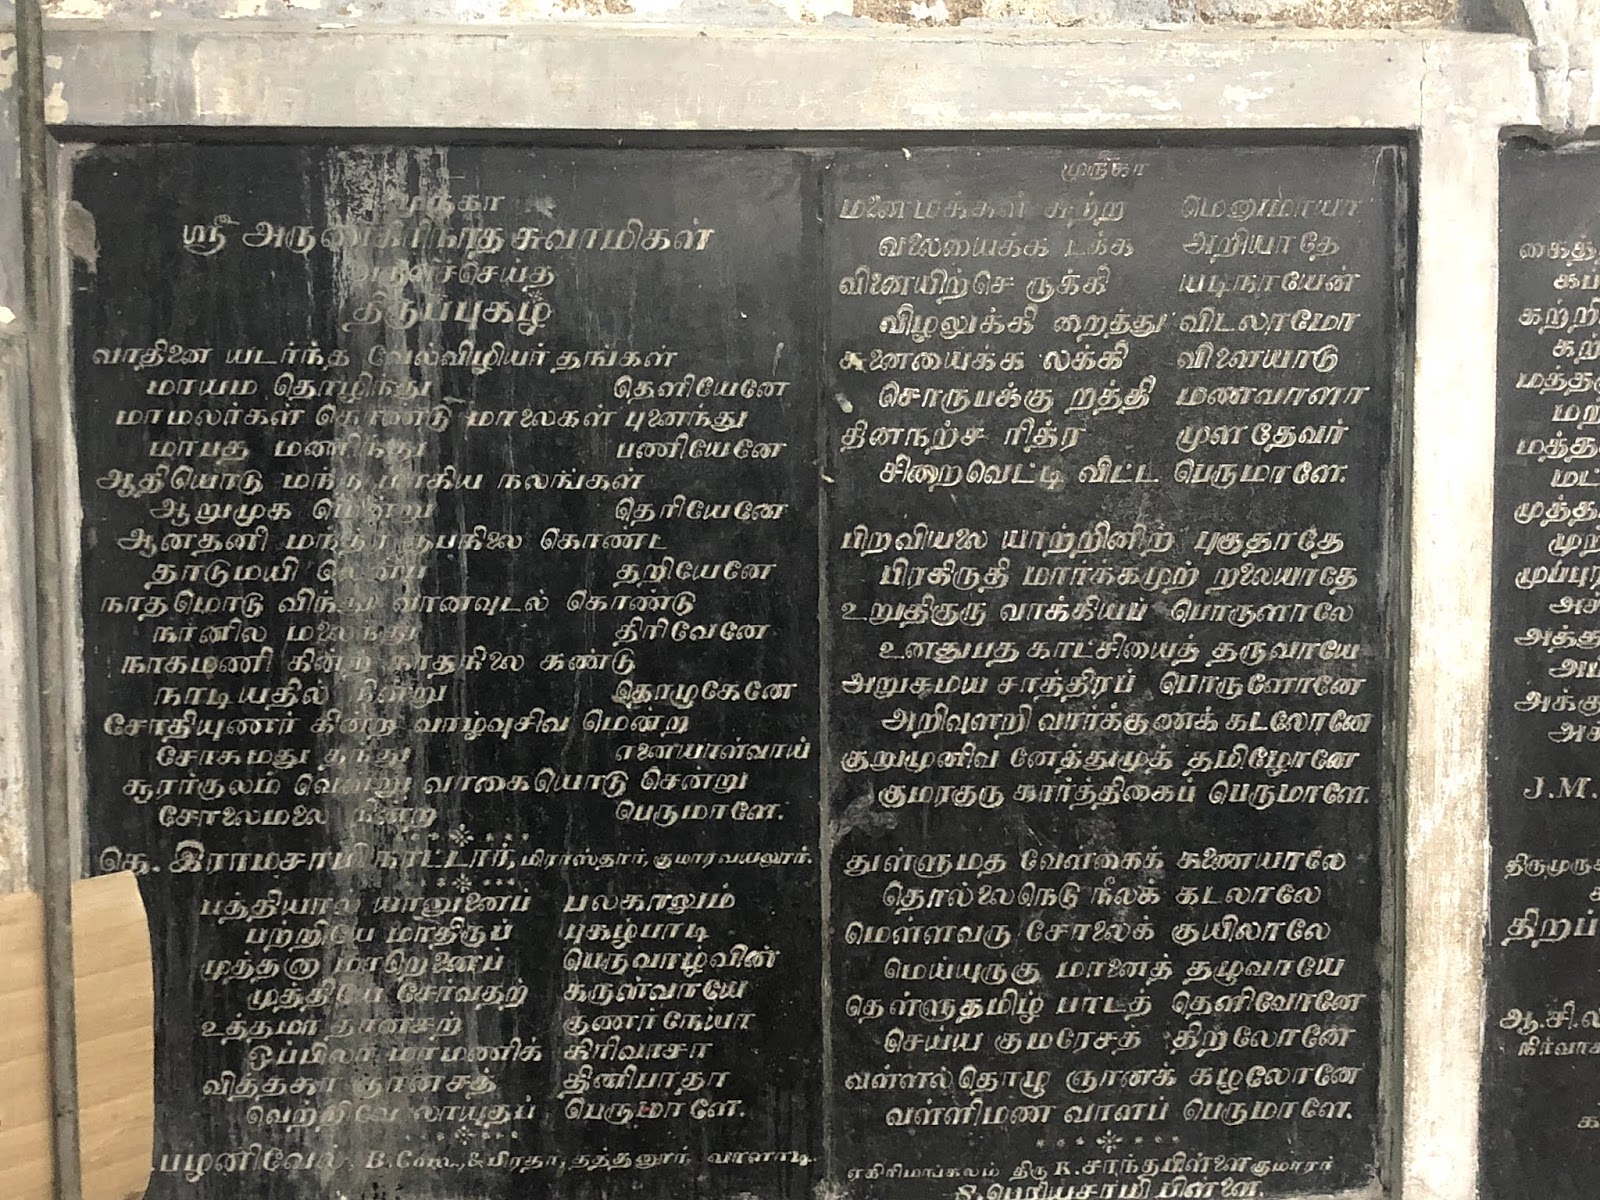 முருகா
ஸ்ரீ அருணகிரிநாதசுவாமிகள்
அருளிச்செய்த
திருப்புகழ்
வாதினை யடர்ந்த வேல்விழியர் தங்கள்
மாயம தொழிந்து தெளியேனே
மாமலர்கள் கொண்டு மாலைகள் புனைந்து
மாபத மணிந்து பணியேனே
ஆதியொடு மந்த மாகிய நலங்கள்
ஆறுமுக மென்று தெரியேனே
ஆனதனி மந்த்ர ரூபநிலை கொண்ட
தாடுமயி லென்ப தறியேனே
நாதமொடு விந்து வானவுடல் கொண்டு
நானில மலைந்து திரிவேனே
நாகமணி கின்ற நாதநிலை கண்டு
நாடியதில் நின்று தொழுகேனே
சோதியுணர் கின்ற வாழ்வுசிவ மென்ற
சோகமது தந்து எனையாள்வாய்
சூரர்குலம் வென்று வாகையொடு சென்று
சோலைமலை நின்ற பெருமாளே.
தெ. இராமசாமி நாட்டார், மிராஸ்தார், குமாரவயலூர்.
பத்தியால் யானுனைப் பலகாலும்
பற்றியே மாதிருப் புகழ்பாடி
முத்தனா மாறெனைப் பெருவாழ்வின்
முத்தியே சேர்வதற் கருள்வாயே
உத்தமா தானசற் குணர்நேயா
ஒப்பிலா மாமணிக் கிரிவாசா
வித்தகா ஞானசத் தினிபாதா
வெற்றிவே லாயுதப் பெருமாளே.
பழனிவேல், B.Co., &பிரதர், தத்தனூர் வாளாடி.
முருகா
மனைமக்கள் சுற்ற மெனுமாயா
வலையைக்க டக்க அறியாதே
வினையிற்செ ருக்கி யடிநாயேன்
விழலுக்கி றைத்து விடலாமோ
சுனையைக்க லக்கி விளையாடு
சொருபக்கு றத்தி மணவாளா
தினநற்ச ரித்ர முளதேவர்
சிறைவெட்டி விட்ட பெருமாளே.
பிறவியலை யாற்றினிற் புகுதாதே
பிரகிருதி மார்க்கமுற் றலையாதே
உறுதிகுரு வாக்கியப் பொருளாலே
உனதுபத காட்சியைத் தருவாயே
அறுசமய சாத்திரப் பொருளோனே
அறிவுளறி வார்க்குணக் கடலோனே
குறுமுனிவ னேத்துமுத் தமிழோனே
குமரகுரு கார்த்திகைப் பெருமாளே.
துள்ளுமத வேள்கைக் கணையாலே
தொல்லைநெடு நீலக் கடலாலே
மெள்ளவரு சோலைக் குயிலாலே
மெய்யுருகு மானைத் தழுவாயே
தெள்ளுதமிழ் பாடத் தெளிவோனே
செய்ய குமரேசத் திறலோனே
வள்ளல்தொழு ஞானக் கழலோனே
வள்ளிமண வாளப் பெருமாளே.
எகிரிமங்கலம் திரு R. சாந்தபிள்ளை குமாரர்
S. பெரியசாமி பிள்ளை.
J.M.